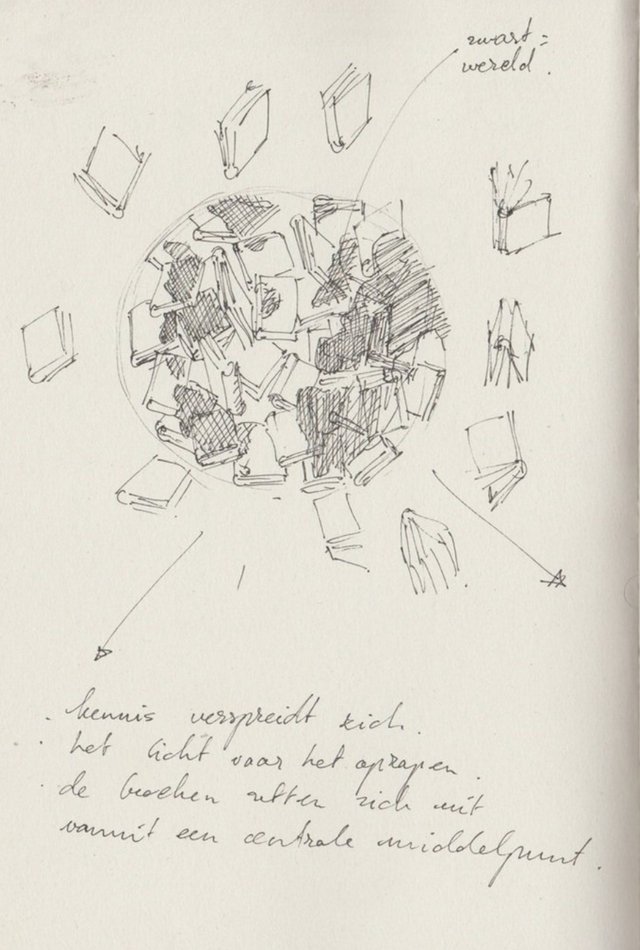 zwart =
wereld.
. kennis verspreidt zich.
. het licht voor het oprapen.
. de boeken zetten zich uit
vanuit een centrale middelpunt.